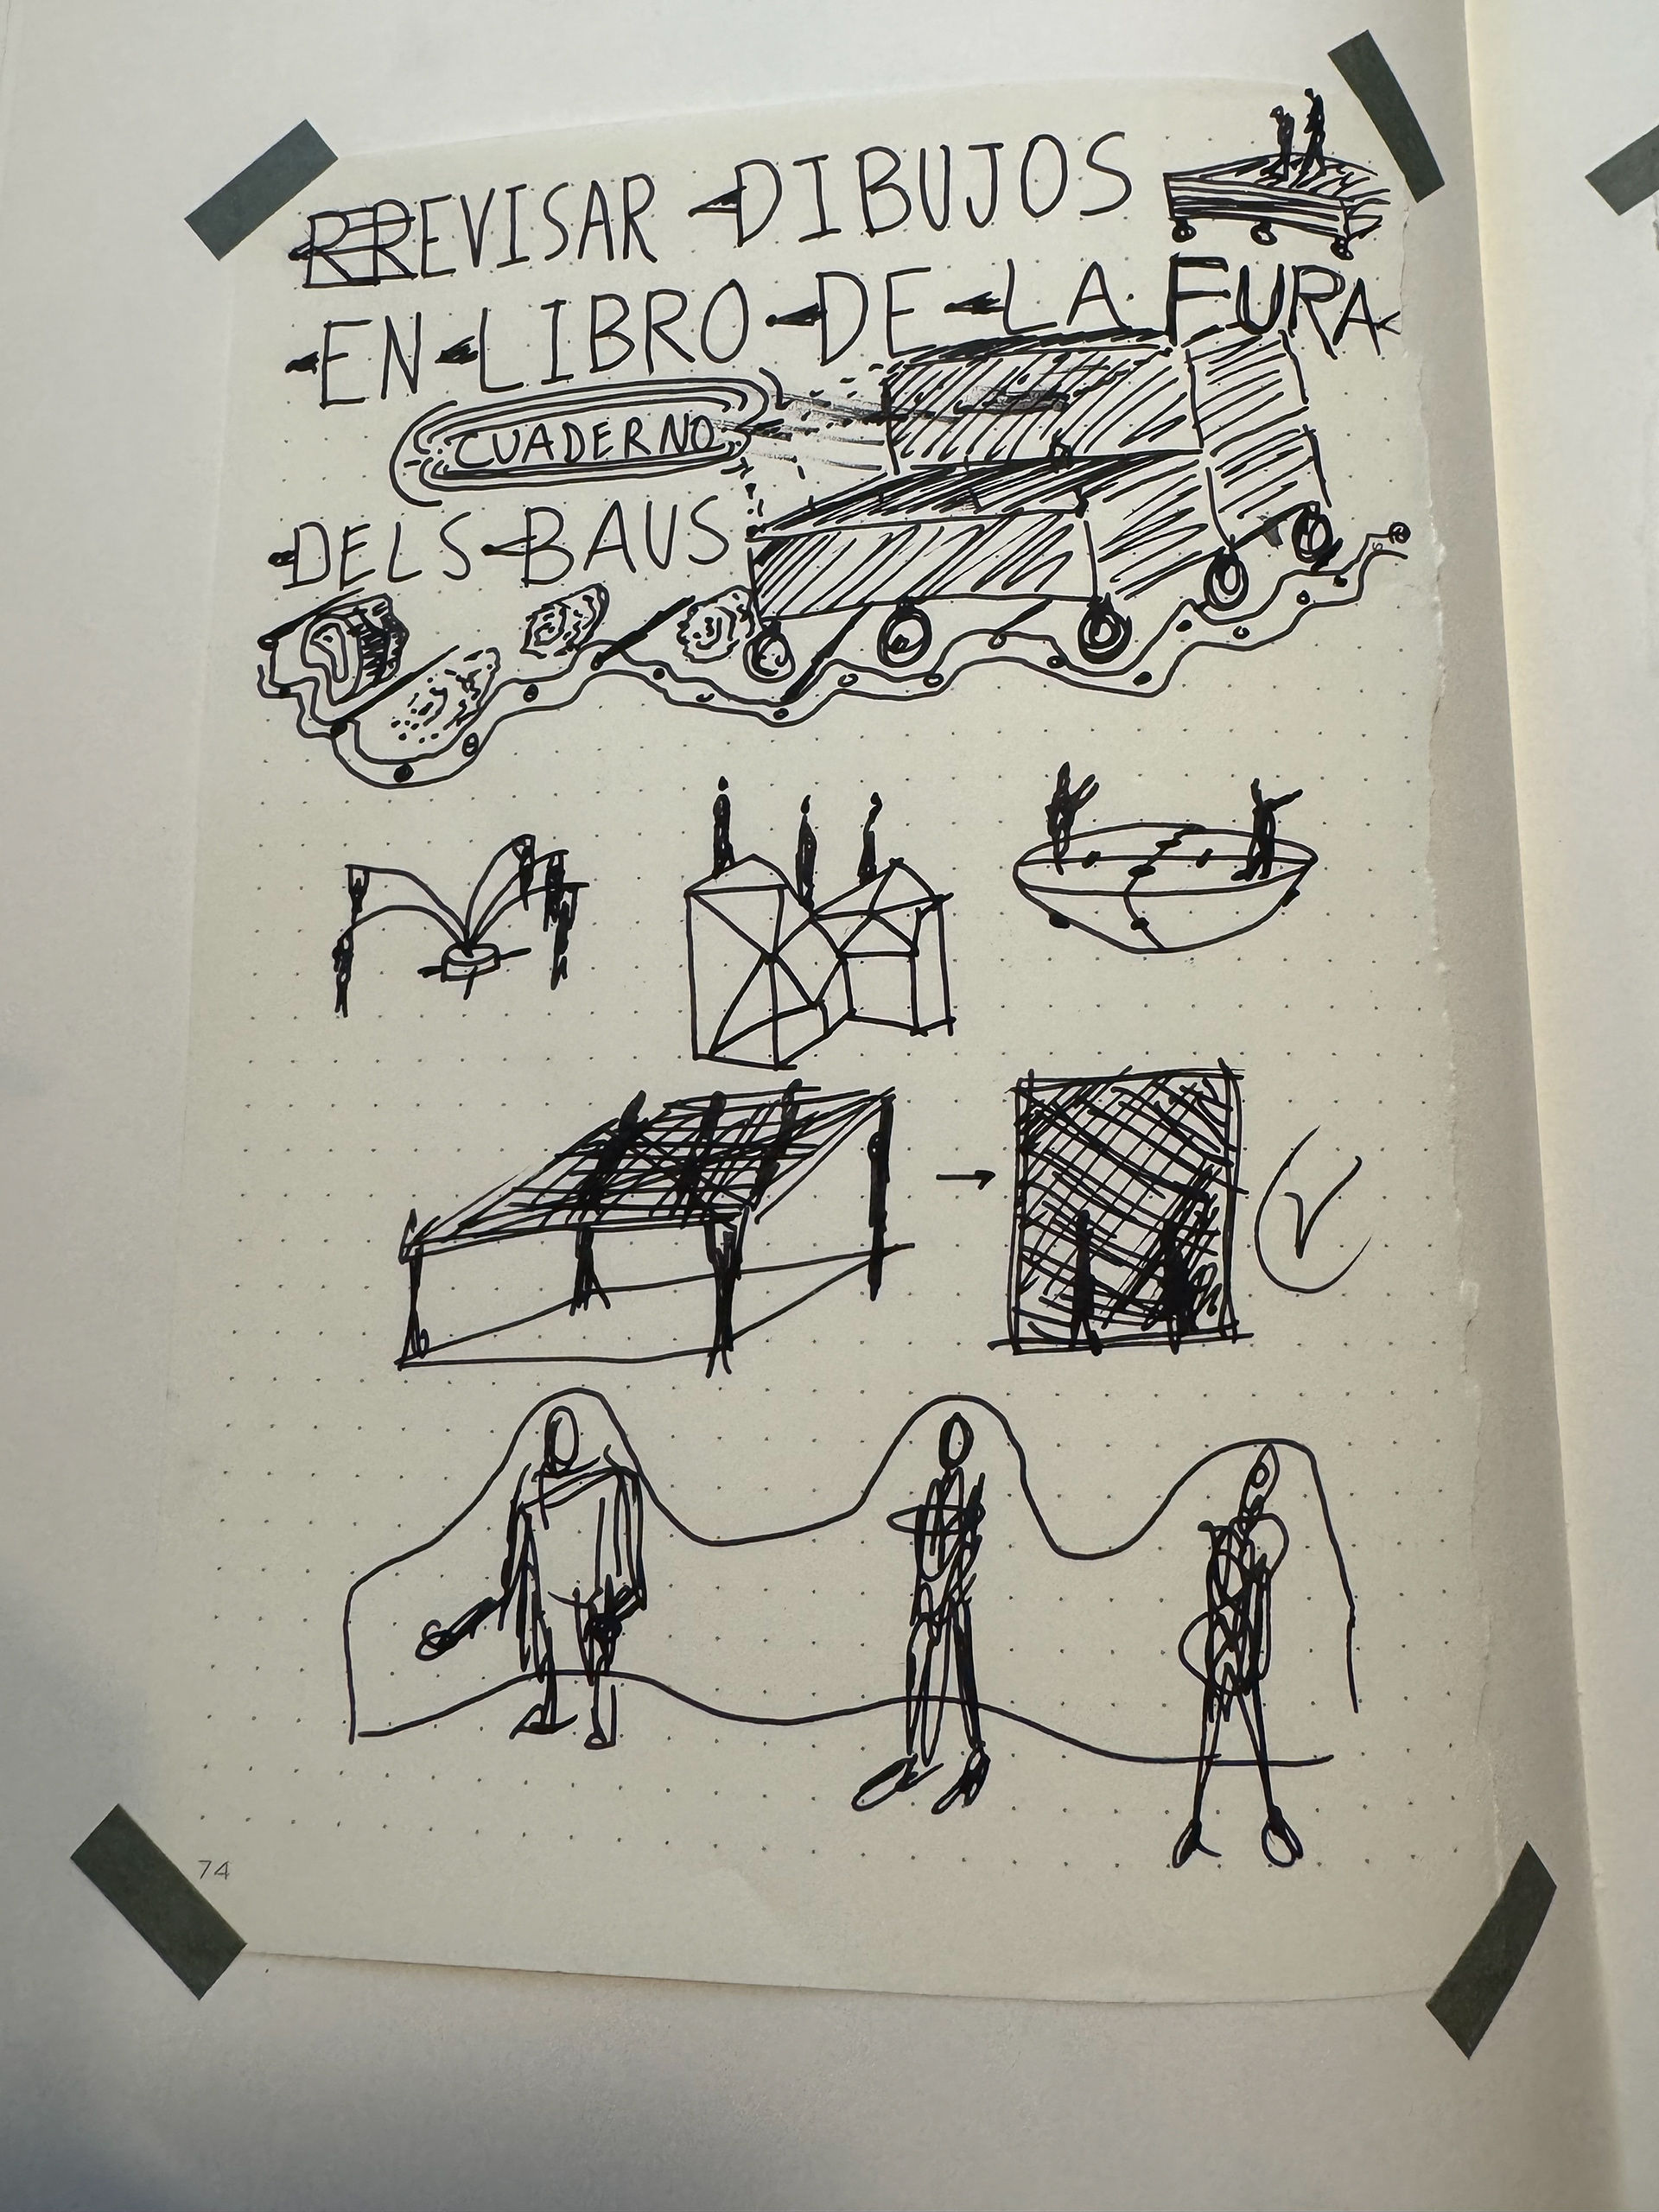 REVISAR DIBUJOS
EN LIBRO DE LA FURA
CUADERNO
DELS BAUS
74